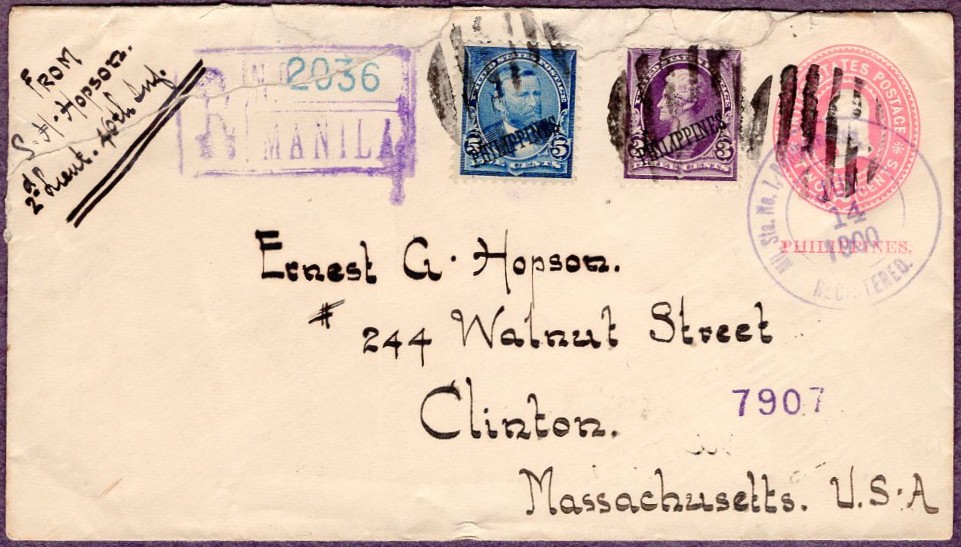 FROM
S. H. Hopson.
2d Lieut. 40th Inf.
2036
R
MANILA
UNITED STATES POSTAGE
PHILIPPINES
5 5
PHILIPPINES
3 3
STATES POSTAGE
CENTS
PHILIPPINES.
Mil. Sta. No. 1,
14
1900
REGISTERED.
Ernest G. Hopson.
# 244 Walnut Street
Clinton.
7907
Massachusetts. U.S.A